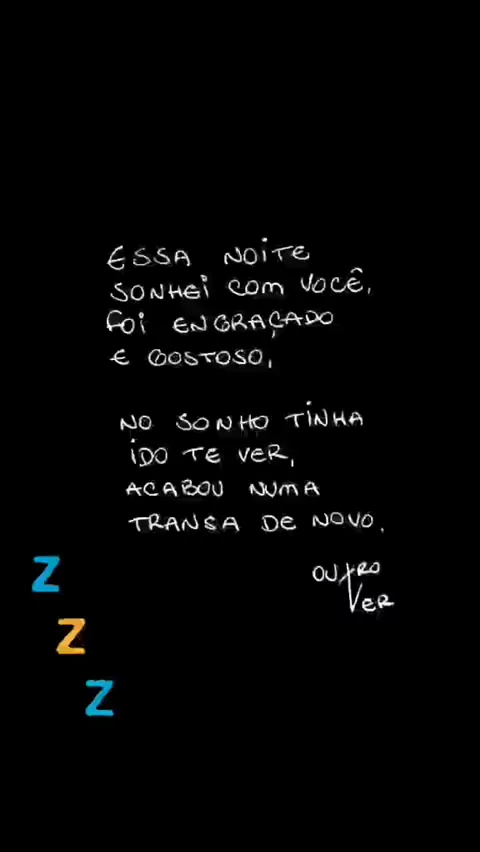 ESSA NOITE
SONHEI COM VOCÊ,
FOI ENGRAÇADO
E GOSTOSO,
NO SONHO TINHA
IDO TE VER,
ACABOU NUMA
TRANSA DE NOVO.
OUTRO
VER
Z
Z
Z